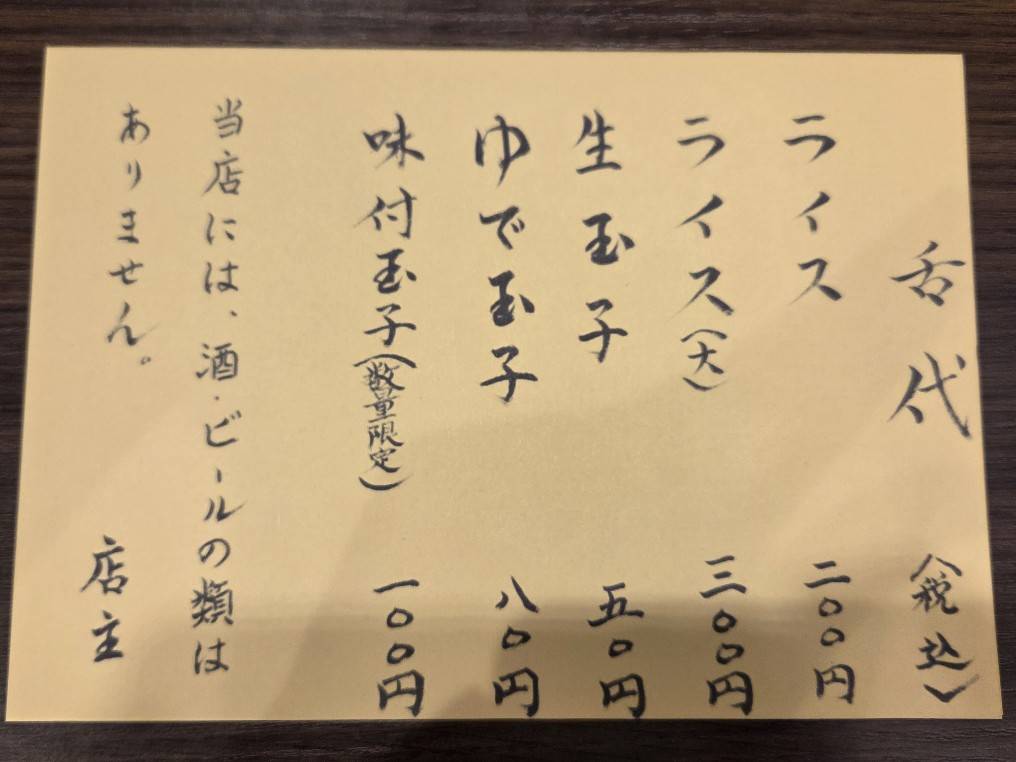 舌代 (税込)
ライス 二〇〇円
ライス(大) 三〇〇円
生玉子 五〇円
ゆで玉子 八〇円
味付玉子(数量限定) 一〇〇円
当店には、酒・ビールの類は
ありません。
店主